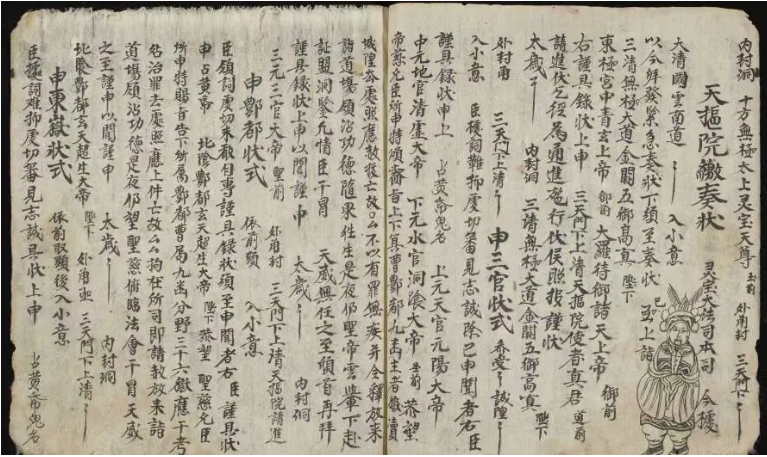 内封洞 十方無極太上灵宝天尊 玉前 外角封 三天門下
天樞院繳奏状 灵宝大法司本司 今據
大清國雲南道 入小意
以今鮮發緊急奏狀下頒至奏狀 上詣
三清無極大道金闕五御高真 陛下
東極宮中青玄上帝 御前 大羅待御諸天上帝 御前
右謹具錄狀上申 三天門下上清天樞院使者真君 道前
請進伏乞經為通進施行伏候照㨿謹狀
太歲 内封洞 三清無極大道金闕五御高真 陛下
外封角 三天門下上清 申三官狀式 誠惶
入小意 臣㨿詞難抑慮切審見志誠除已申聞者右臣
謹具錄狀申上 占黄帝鬼名 上元天官元陽大帝
中元地官清虛大帝 下元水官洞陰大帝 恭望
帝慈允臣所申特頒齋告上下真曹酆都九壘主者
城隍各處照應教拔亡故 不以有罪無疾并令釋放來
詣道場領沾功德隨果往生是夜仍聖帝雲輦下赴
証盟洞鑒允情臣干冒 天威無任之至傾首再拜
謹具錄狀上申以聞謹申 太歲 内封洞
三元三官大帝 聖前 外角封 三天門下上清天樞院請進
申酆都狀式 依前頭 入小意
臣領詞虔切未敢自專謹具錄狀須至申聞者右臣謹具狀
申占黄帝 北陰酆都玄天超生大帝 陛下 恭望 聖慈允臣
所申特賜音告下所属酆都曹局九壘分野三十六獄應干考
名治罪去處照應上件亡故 拘在所司即請教放来詣
道塲領沾功德是夜仍望聖慈俯臨法會干冒天威
之至謹申以聞謹申 太歲 内封洞
北陰酆都玄天超生大帝 陛下 外角 三天門下上清
申東嶽狀式 依前取頭後入小意
臣㨿詞难抑虔切審見志誠具狀上申 占黄帝鬼名